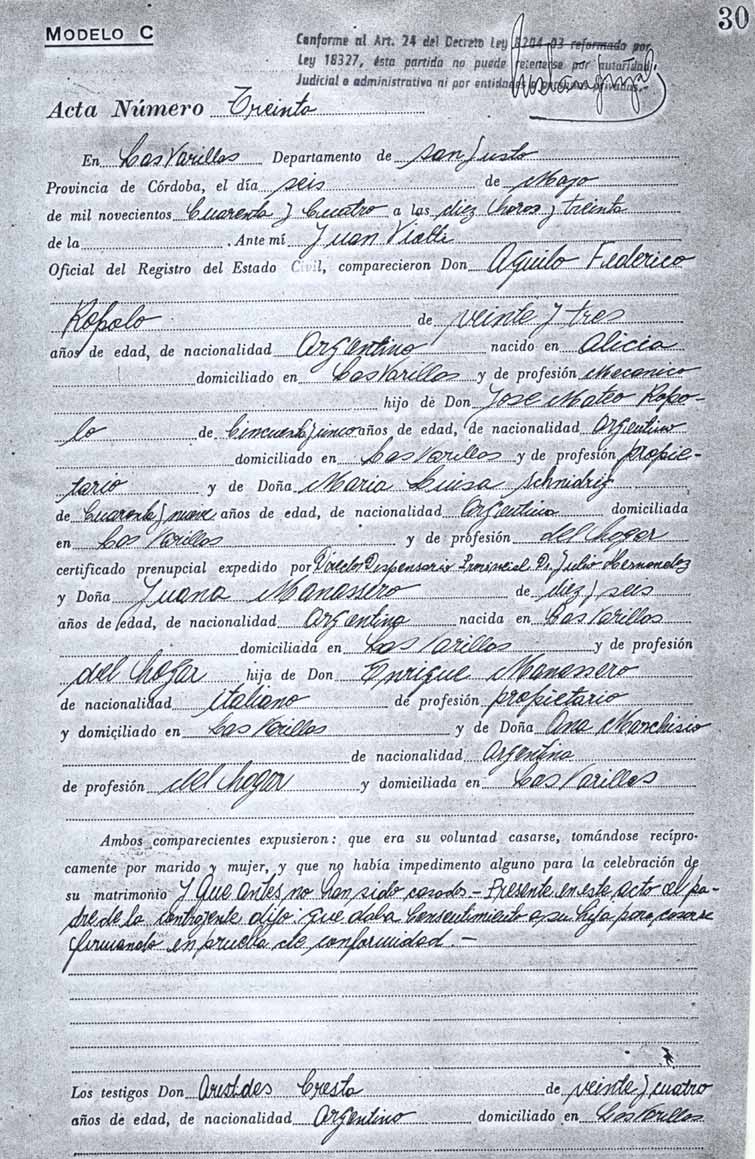 30
MODELO C
Conforme al Art. 24 del Decreto Ley 8204-63 reformado por
Ley 18327, ésta partida no puede retenerse por autoridad
Judicial o administrativa ni por entidades o personas privadas.-
Acta Número Treinta
En Las Varillas Departamento de San Justo
Provincia de Córdoba, el día seis de Mayo
de mil novecientos Cuarenta y Cuatro a las diez horas y treinta
de la . Ante mí Juan Vialli
Oficial del Registro del Estado Civil, comparecieron Don Aquilo Federico
Ropolo de veinte y tres
años de edad, de nacionalidad Argentino nacido en Alicia
domiciliado en Las Varillas y de profesión Mecanico
hijo de Don Jose Mateo Ropo-
lo de Cincuenta y cinco años de edad, de nacionalidad Argentino
domiciliado en Las Varillas y de profesión propie-
tario y de Doña Maria Luisa Schnidrig
de Cuarenta y nueve años de edad, de nacionalidad Argentina domiciliada
en Las Varillas y de profesión del hogar
certificado prenupcial expedido por Director Dispensario Provincial Dr. Julio Hernandez
y Doña Juana Manassero de diez y seis
años de edad, de nacionalidad Argentina nacida en Las Varillas
domiciliada en Las Varillas y de profesión
del hogar hija de Don Enrique Manassero
de nacionalidad italiano de profesión propietario
y domiciliado en Las Varillas y de Doña Ana Marchisio
de nacionalidad Argentina
de profesión del hogar y domiciliada en Las Varillas
Ambos comparecientes expusieron: que era su voluntad casarse, tomándose recípro-
camente por marido y mujer, y que no había impedimento alguno para la celebración de
su matrimonio y que antes no han sido casados - Presente en este acto el pa-
dre de la contrayente dijo: que daba consentimiento a su hija para casarse
firmando en prueba de conformidad. -
Los testigos Don Aristides Cresta de veinte y cuatro
años de edad, de nacionalidad Argentino domiciliado en Las Varillas